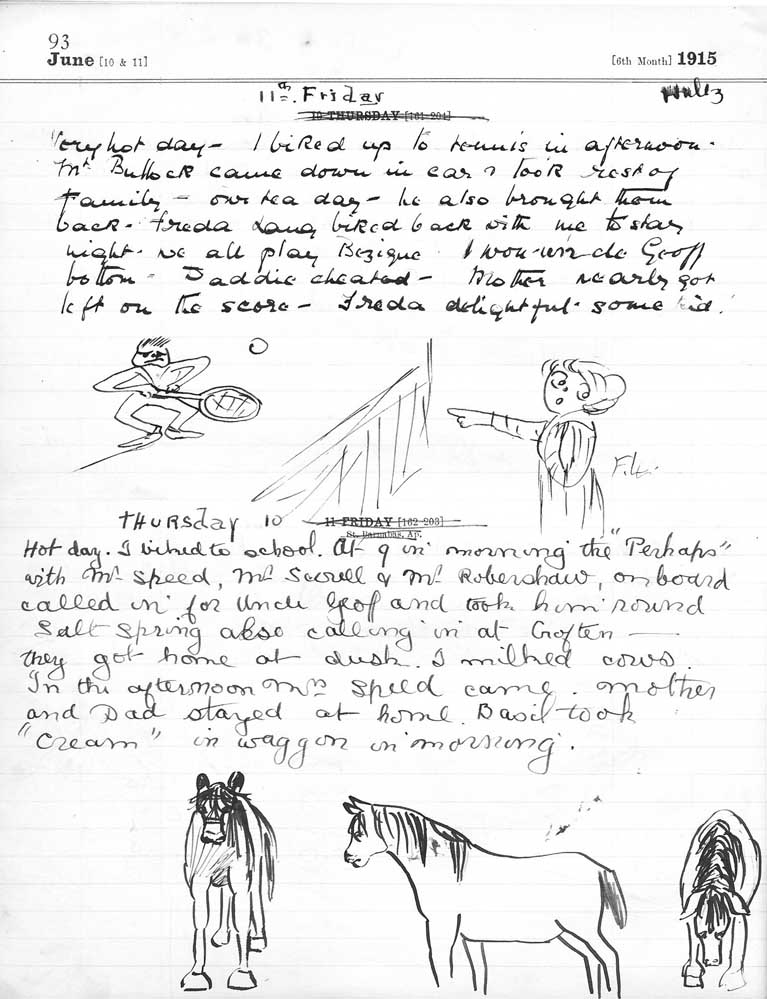 93
June [10 & 11] [6th Month] 1915
11th. Friday
10 THURSDAY [161-204]
Very hot day - I biked up to tennis in afternoon.
Mr Bullock came down in car & took rest of
family - our tea day - he also brought them
back. Freda Lang biked back with me to stay
night. we all play Bezique. I won - Geoff
bottom - Daddie cheated - Mother nearly got
left on the score - Freda delightful. some kid.
F.L.
THURSday 10 11 FRIDAY [162-203]
St. Barnabas, Ap.
Hot day. I biked to school. At 9 in morning the "Perhaps"
with Mr Speed, Mr Scovell & Mr Robershaw, on board
called in for Uncle Geoff and took him round
Salt Spring also calling in at Crofton —
they got home at dusk. I milked cows.
In the afternoon Mrs Speed came. Mother
and Dad stayed at home. Basil took
"Cream" in waggon in morning.